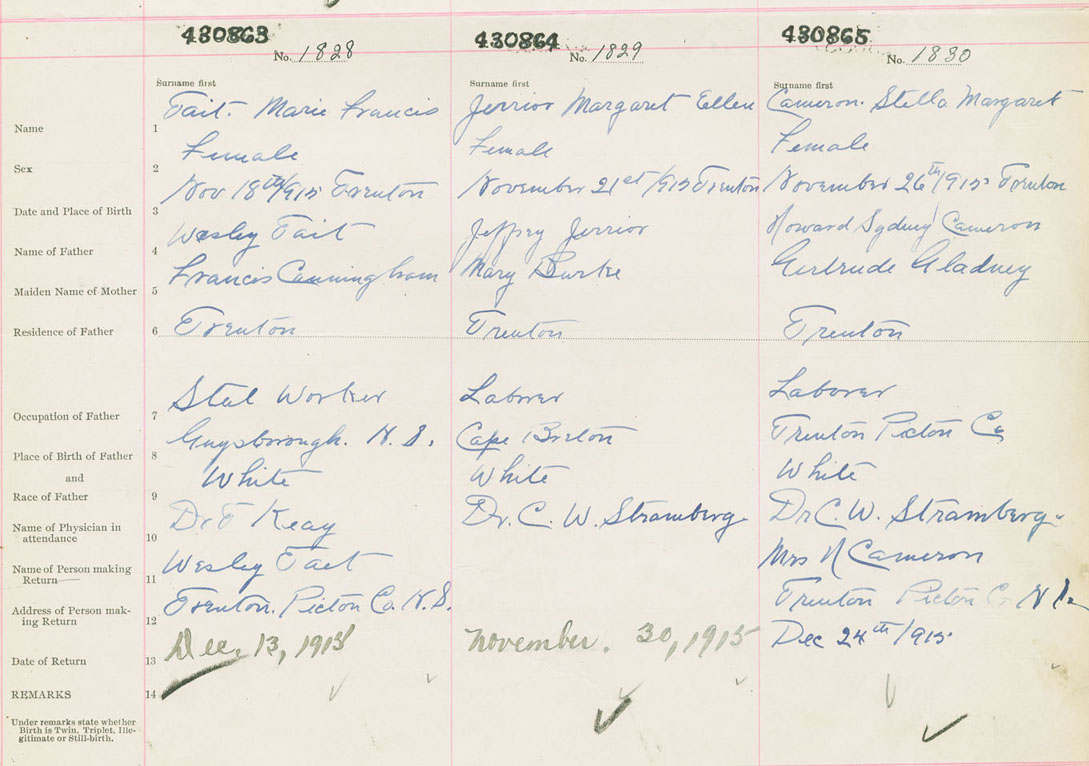 430863
No. 1828
430864
No. 1829
430865
No. 1830
Surname first
Surname first
Surname first
Name
1
Tait. Marie Francis
Jerrior Margaret Ellen
Cameron. Stella Margaret
Sex
2
Female
Female
Female
Date and Place of Birth
3
Nov 18th/915 Trenton
November 21st/915 Trenton
November 26th/915 Trenton
Name of Father
4
Wesley Tait
Jeffrey Jerrior
Howard Sydney Cameron
Maiden Name of Mother
5
Francis Cunningham
Mary Burke
Gertrude Gladney
Residence of Father
6
Trenton
Trenton
Trenton
Occupation of Father
7
Steel Worker
Laborer
Laborer
Place of Birth of Father
8
Guysborough. N.S.
Cape Breton
Trenton Pictou Co
and
Race of Father
9
White
White
White
Name of Physician in
attendance
10
Dr Keay
Dr. C. W. Stramberg
Dr C. W. Stramberg
Name of Person making
Return
11
Wesley Tait
Mrs Cameron
Address of Person mak-
ing Return
12
Trenton. Pictou Co. N.S.
Trenton Pictou Co N
Date of Return
13
Dec. 13, 1915
November. 30, 1915
Dec 24th/915
REMARKS
14
Under remarks state whether
Birth is Twin, Triplet, Ille-
gitimate or Still-birth.